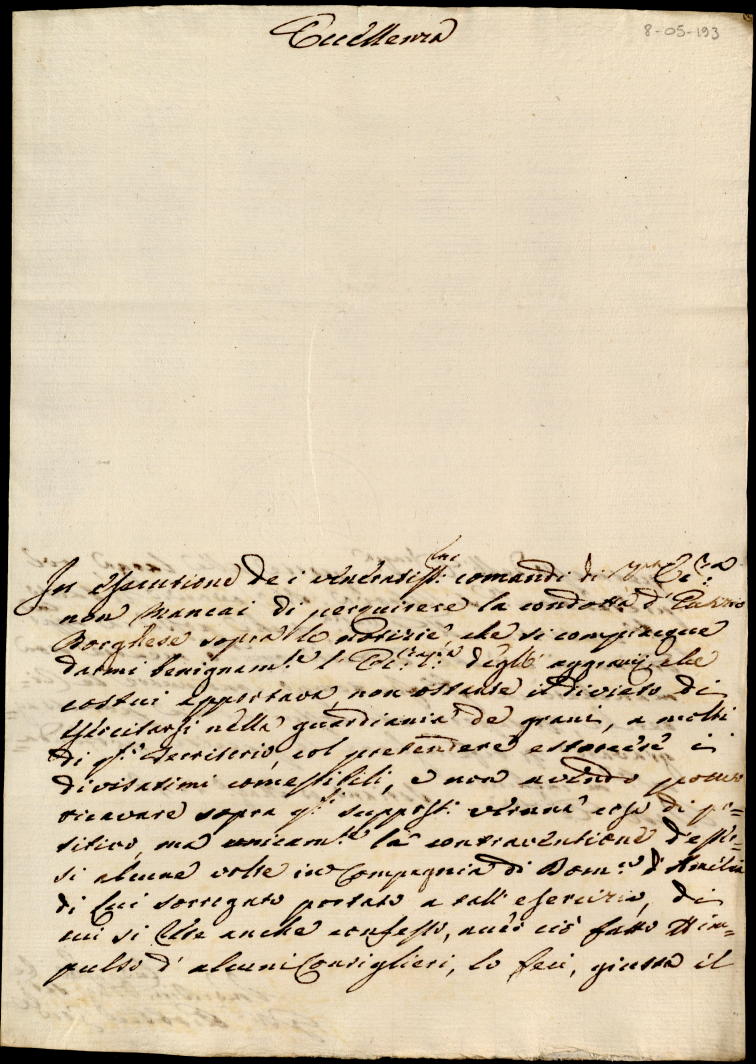 Eccellenza
8-05-193
In essecuzione de i veneratiss.mi comandi di V'ra Ecc.za
non mancai di perquirere la condotta d'
Borghese sopra le notizie, che si compiacque
darmi benignam.te l'Ecc.za V.ra degl' aggravij, che
costui apportava non ostante il divieto di
esercitarsi nella guardiania de grani, a molti
di q.to Territorio, col pretendere estorcere i
divisatimi comestibili, e non avendo potuto
ricavare sopra q.ti supposti veruna cosa di po=
sitivo, ma unicam.te la contraventione d'esser=
si alcune volte in Compagnia di Dom.co d'Amelia
di lui sorrogato portato a tall' esercizio, di
cui si è anche confesso, aver ciò fatto
pulso d' alcuni Consiglieri, lo feci, giusta il